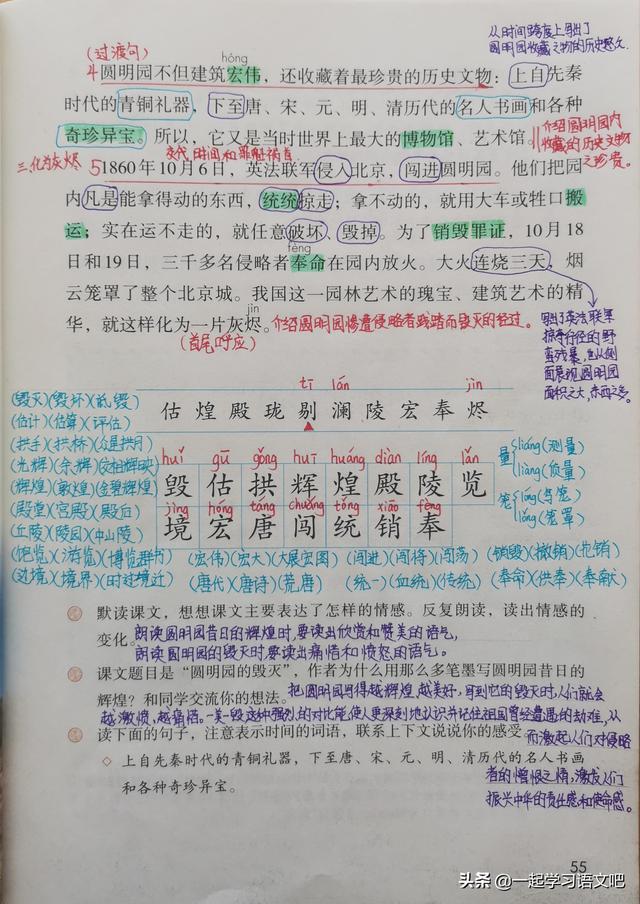 从时间跨度上写出了
圆明园收藏文物的历史悠久.
(过渡句)
hóng
4圆明园不但建筑宏伟，还收藏着最珍贵的历史文物：上自先秦
时代的青铜礼器，下至唐、宋、元、明、清历代的名人书画和各种
奇珍异宝。所以，它又是当时世界上最大的博物馆、艺术馆。
介绍圆明园内
收藏的历史文物
之珍贵。
交代时间和罪魁祸首
三.化为灰烬
5 1860年10月6日，英法联军侵入北京，闯进圆明园。他们把园
内凡是能拿得动的东西，统统掠走；拿不动的，就用大车或牲口搬
运；实在运不走的，就任意破坏、毁掉。为了销毁罪证，10月18
fèng
日和19日，三千多名侵略者奉命在园内放火。大火连烧三天，烟
云笼罩了整个北京城。我国这一园林艺术的瑰宝、建筑艺术的精
jìn
华，就这样化为一片灰烬。介绍圆明园惨遭侵略者践踏而毁灭的经过。
(首尾呼应)
写出了英法联军
掠夺行径的野
蛮残暴,也从侧
面展现圆明园
面积之大,东西之多。
tī lán jìn
估 煌 殿 珑 剔 澜 陵 宏 奉 烬
(毁灭)(毁坏)(诋毁)
(估计)(估算)(评估)
(拱手)(拱桥)(众星拱月)
(光辉)(余辉)(交相辉映)
(辉煌)(敦煌)(金碧辉煌)
(殿堂)(宫殿)(殿后)
(丘陵)(陵园)(中山陵)
(饱览)(游览)(博览群书)
(边境)(境界)(时过境迁)
huǐ gū gǒng huī huáng diàn líng lǎn
毁 估 拱 辉 煌 殿 陵 览
jìng hóng táng chuǎng tǒng xiāo fèng
境 宏 唐 闯 统 销 奉
量 liáng(测量)
liàng(质量)
笼 lóng(鸟笼)
lǒng(笼罩)
(宏伟)(宏大)(大展宏图) (闯进)(闯将)(闯荡) (销毁)(撤销)(兜销)
(唐代)(唐诗)(荒唐) (统一)(血统)(传统) (奉命)(供奉)(奉献)
默读课文，想想课文主要表达了怎样的情感。反复朗读，读出情感的
变化。朗读圆明园昔日的辉煌时,要读出欣赏和赞美的语气,
朗读圆明园的毁灭时,要读出痛惜和愤怒的语气。
课文题目是“圆明园的毁灭”，作者为什么用那么多笔墨写圆明园昔日的
辉煌？和同学交流你的想法。把圆明园写得越辉煌,越美好,写到它的毁灭时,人们就会
越激愤,越痛惜。一美一毁这种强烈的对比能使人更深刻地认识并记住祖国曾经遭遇的劫难,从
读下面的句子，注意表示时间的词语，联系上下文说说你的感受。
而激起人们对侵略
◇ 上自先秦时代的青铜礼器，下至唐、宋、元、明、清历代的名人书画
和各种奇珍异宝。
者的憎恨之情,激发人们
振兴中华的责任感和使命感。
55
头条 @一起学习语文吧